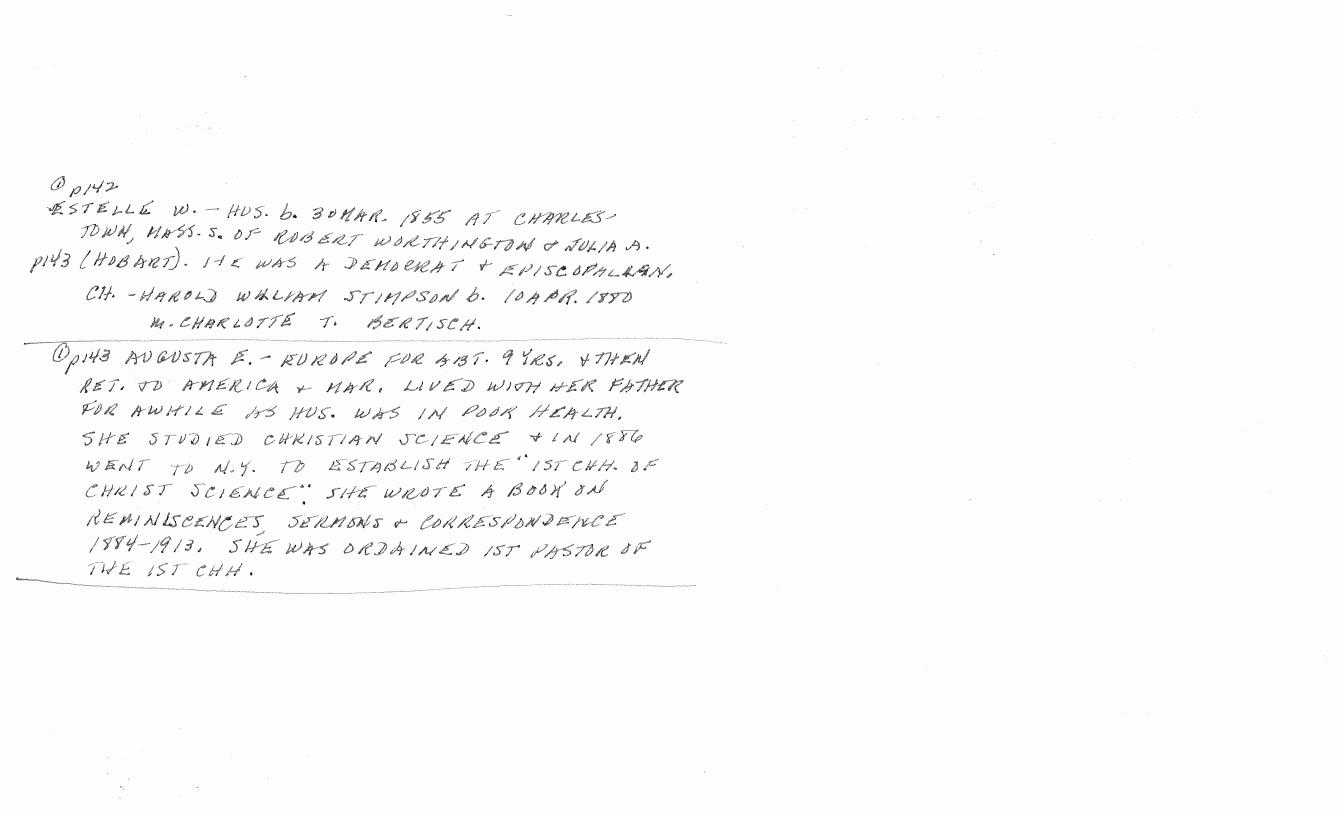 ① p142
ESTELLE W. - HUS. b. 30 MAR. 1855 AT CHARLES-
TOWN, MASS. S. OF ROBERT WORTHINGTON & JULIA A.
p143 (HOBART). HE WAS A DEMOCRAT & EPISCOPALIAN.
CH. - HAROLD WILLIAM STIMPSON b. 10 APR. 1880
m. CHARLOTTE T. BERTISCH.
① p143 AUGUSTA E. - EUROPE FOR ABT. 9 YRS. & THEN
RET. TO AMERICA & MAR. LIVED WITH HER FATHER
FOR AWHILE AS HUS. WAS IN POOR HEALTH.
SHE STUDIED CHRISTIAN SCIENCE & IN 1886
WENT TO N.Y. TO ESTABLISH THE "1ST CHH. OF
CHRIST SCIENCE". SHE WROTE A BOOK ON
REMINISCENCES, SERMONS & CORRESPONDENCE
1884-1913. SHE WAS ORDAINED 1ST PASTOR OF
THE 1ST CHH.